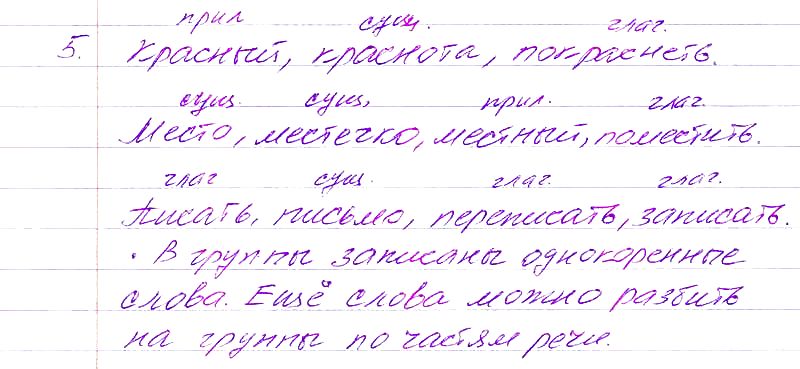 прил сущ. глаг.
5. Красный, краснота, покраснеть.
сущ. сущ. прил. глаг.
Место, местечко, местный, поместить.
глаг сущ. глаг. глаг.
Писать, письмо, переписать, записать.
· В группы записаны однокоренные
слова. Ещё слова можно разбить
на группы по частям речи.